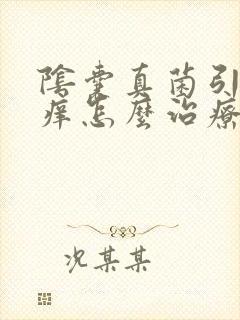 陰囊真菌引
痒怎麼治療
况某某